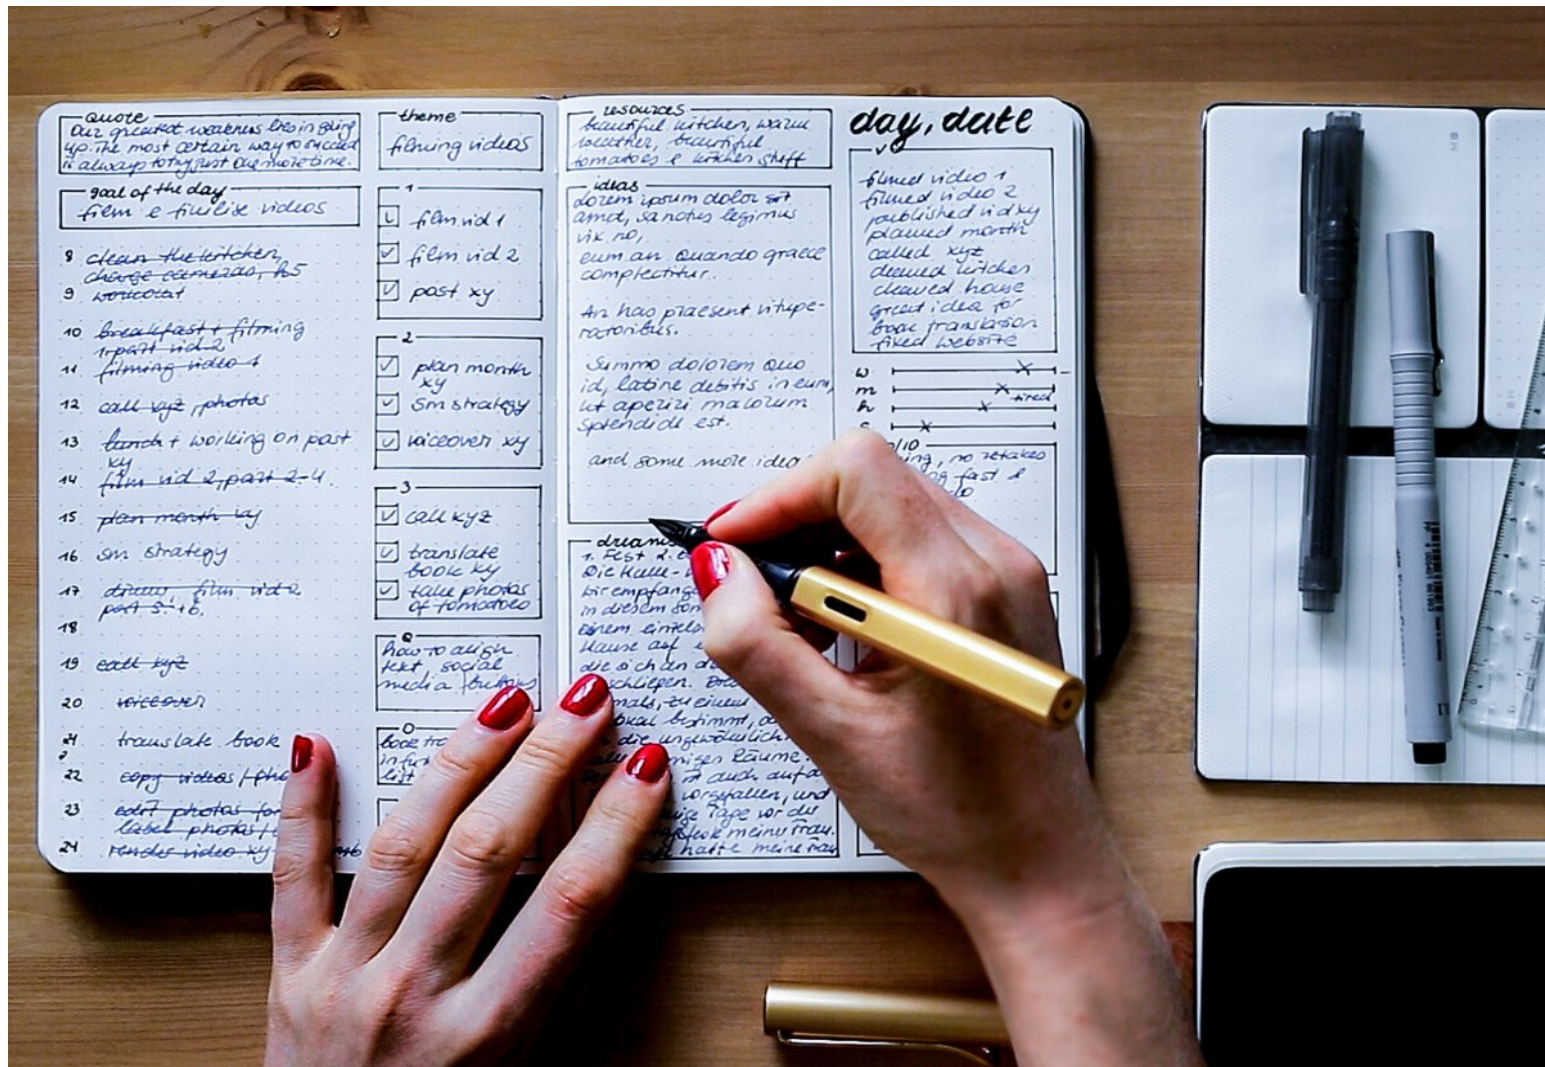 quote
Our greatest weakness lies in giving
up. The most certain way to succeed
is always to try just one more time.
goal of the day
film e finilise videos
8 clean the kitchen,
charge cameras, h5
9 workout
10 breakfast + filming
1. part vid 2
11 filming video 1
12 call xyz, photos
13 lunch + working on past
xy
14 film vid 2, part 2-4.
15 plan month xy
16 sm strategy
17 dinner, film vid 2
part 5-+6.
18
19 call xyz
20 voiceover
21 translate book
22 copy videos / pho
23 edit photos for
label photos/
24 render video xy
theme
filming videos
1
film vid 1
film vid 2
post xy
2
plan month
xy
sm strategy
voiceover xy
3
call xyz
translate
book xy
take photos
of tomatoes
Q
how to align
text, social
media buttons
O
book tra
in fur
list
resources
beautiful kitchen, warm
weather, beautiful
tomatoes e kitchen stuff
ideas
Lorem ipsum dolor sit
amet, sanctus legimus
vix no,
eum an. Quando graece
complectitur.
An has praesent vitupe-
ratoribus.
Summo dolorem quo
id, latine debitis in eum,
ut aperiri malorum
splendide est.
and some more idea
dreams
1. Fest 2. e
Die Halle-
wir empfange
in diesem son
einem einzel
Hause auf e
die sich an d
schließen.
mals, zu einem
bestimmt, d
die ungewöhnlich
Räume
ist auch auf d
vorgefallen, und
Tage vor du
meine Frau.
hatte meine Frau
day, date
filmed video 1
filmed video 2
published vid xy
planned month
called xyz
cleaned kitchen
cleaned house
great idea for
book translation
fixed website
w
m
tired
h
s
/10
ing, no retakes
g fast &
do